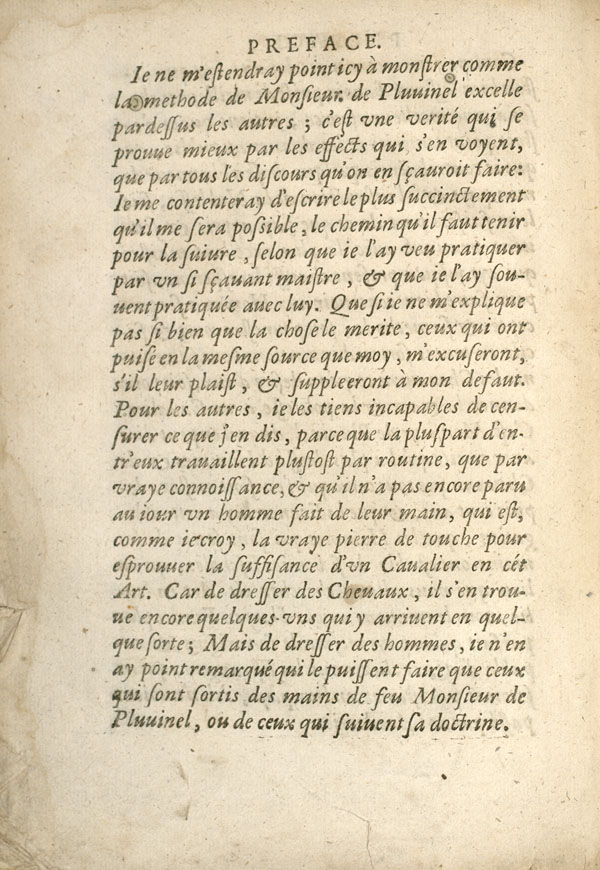 PREFACE.
Ie ne m'eſtendray point icy à monſtrer comme
la methode de Monſieur. de Pluuinel excelle
pardeſſus les autres ; c'eſt vne verité qui ſe
prouue mieux par les effects qui s'en voyent,
que par tous les diſcours qu'on en ſçauroit faire:
Ie me contenteray d'eſcrire le plus ſuccinctement
qu'il me ſera poſſible, le chemin qu'il faut tenir
pour la ſuiure, ſelon que ie l'ay veu pratiquer
par vn ſi ſçauant maiſtre, & que ie l'ay ſou-
uent pratiquée auec luy. Que ſi ie ne m'explique
pas ſi bien que la choſe le merite, ceux qui ont
puiſé en la meſme ſource que moy, m'excuſeront,
s'il leur plaiſt, & ſuppleeront à mon defaut.
Pour les autres, ie les tiens incapables de cen-
ſurer ce que j'en dis, parce que la pluſpart d'en-
tr'eux trauaillent pluſtoſt par routine, que par
vraye connoiſſance, & qu'il n'a pas encore paru
au iour vn homme fait de leur main, qui eſt,
comme ie croy, la vraye pierre de touche pour
eſprouuer la ſuffiſance d'vn Caualier en cét
Art. Car de dreſſer des Cheuaux, il s'en trou-
ue encore quelques-vns qui y arriuent en quel-
que ſorte; Mais de dreſſer des hommes, ie n'en
ay point remarqué qui le puiſſent faire que ceux
qui ſont ſortis des mains de feu Monſieur de
Pluuinel, ou de ceux qui ſuiuent ſa doctrine.